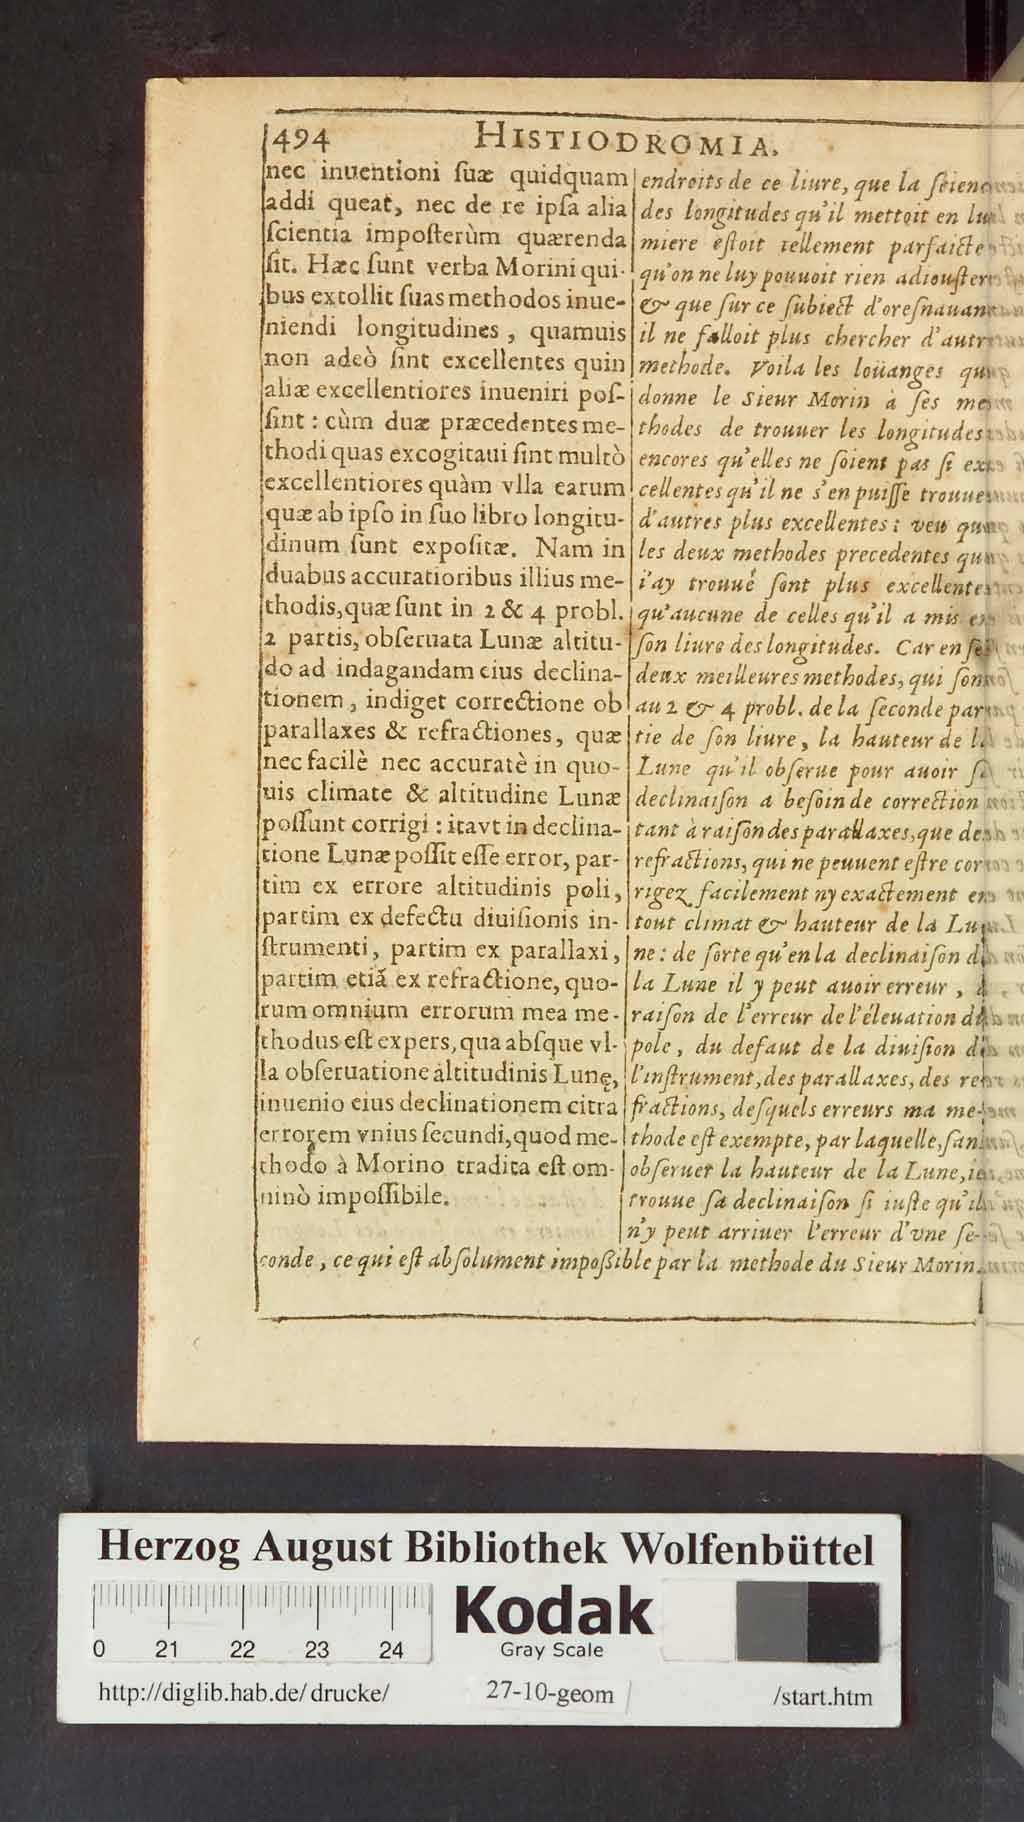 494 HISTIODROMIA.
nec inuentioni ſuæ quidquam
addi queat, nec de re ipſa alia
ſcientia impoſterùm quærenda
ſit. Hæc ſunt verba Morini qui-
bus extollit ſuas methodos inue-
niendi longitudines, quamuis
non adeò ſint excellentes quin
aliæ excellentiores inueniri poſ-
ſint: cùm duæ præcedentes me-
thodi quas excogitaui ſint multò
excellentiores quàm vlla earum
quæ ab ipſo in ſuo libro longitu-
dinum ſunt expoſitæ. Nam in
duabus accuratioribus illius me-
thodis, quæ ſunt in 2 & 4 probl.
2 partis, obſeruata Lunæ altitu-
do ad indagandam eius declina-
tionem, indiget correctione ob
parallaxes & refractiones, quæ
nec facilè nec accuratè in quo-
uis climate & altitudine Lunæ
poſſunt corrigi: itavt in declina-
tione Lunæ poſſit eſſe error, par-
tim ex errore altitudinis poli,
partim ex defectu diuiſionis in-
ſtrumenti, partim ex parallaxi,
partim etiã ex refractione, quo-
rum omnium errorum mea me-
thodus eſt expers, qua abſque vl-
la obſeruatione altitudinis Lunę,
inuenio eius declinationem citra
errorem vnius ſecundi, quod me-
thodo à Morino tradita eſt om-
ninò impoſſibile.
endroits de ce liure, que la
des longitudes qu'il mettoit en
miere eſtoit tellement parfaicte
qu'on ne luy pouuoit rien adiouſter
& que ſur ce ſubiect d'oreſnauan
il ne falloit plus chercher d'autr
methode. Voila les loüanges qu
donne le Sieur Morin a ſes me
thodes de trouuer les longitudes
encores qu'elles ne ſoient pas ſi ex
cellentes qu'il ne s'en puiſſe trouuer
d'autres plus excellentes: veu qu
les deux methodes precedentes qu
i'ay trouué ſont plus excellente
qu'aucune de celles qu'il a mis
ſon liure des longitudes. Car en
deux meilleures methodes, qui ſon
au 2 & 4 probl. de la ſeconde par
tie de ſon liure, la hauteur de
Lune qu'il obſerue pour auoir
declinaiſon a beſoin de correction
tant à raiſon des parallaxes, que de
refractions, qui ne peuuent eſtre cor
rigez facilement ny exactement
tout climat & hauteur de la Lu
ne: de ſorte qu'en la declinaiſon
la Lune il y peut auoir erreur,
raiſon de l'erreur de l'éleuation
pole, du defaut de la diuiſion
l'inſtrument, des parallaxes, des re
fractions, deſquels erreurs ma me-
thode eſt exempte, par laquelle, ſan
obſeruer la hauteur de la Lune,
trouue ſa declinaiſon ſi iuſte qu'il
n'y peut arriuer l'erreur d'vne ſe-
conde, ce qui eſt abſolument impoßible par la methode du Sieur Morin.
Herzog August Bibliothek Wolfenbüttel
0 21 22 23 24
Kodak
Gray Scale
http://diglib.hab.de/drucke/ 27-10-geom /start.htm